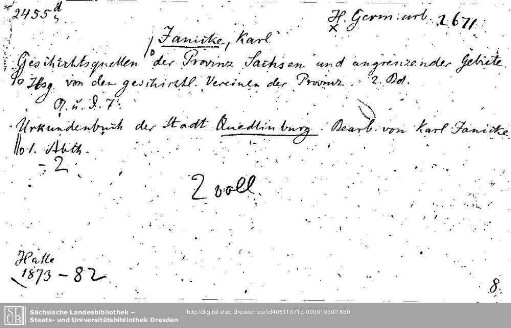 2455 d
H. Germ. urb. 267 1
x
Janicke, Karl
Geschichtsquellen der Provinz Sachsen und angrenzender Gebiete
Hsg. von den geschichtl. Vereinen der Provinz. 2. Bd.
Q. u. d. T.
Urkundenbuch der Stadt Quedlinburg. Bearb. von Karl Janicke.
1. Abth.
- 2
2 voll.
Halle
1873 - 82
8.
Sächsische Landesbibliothek –
Staats- und Universitätsbibliothek Dresden